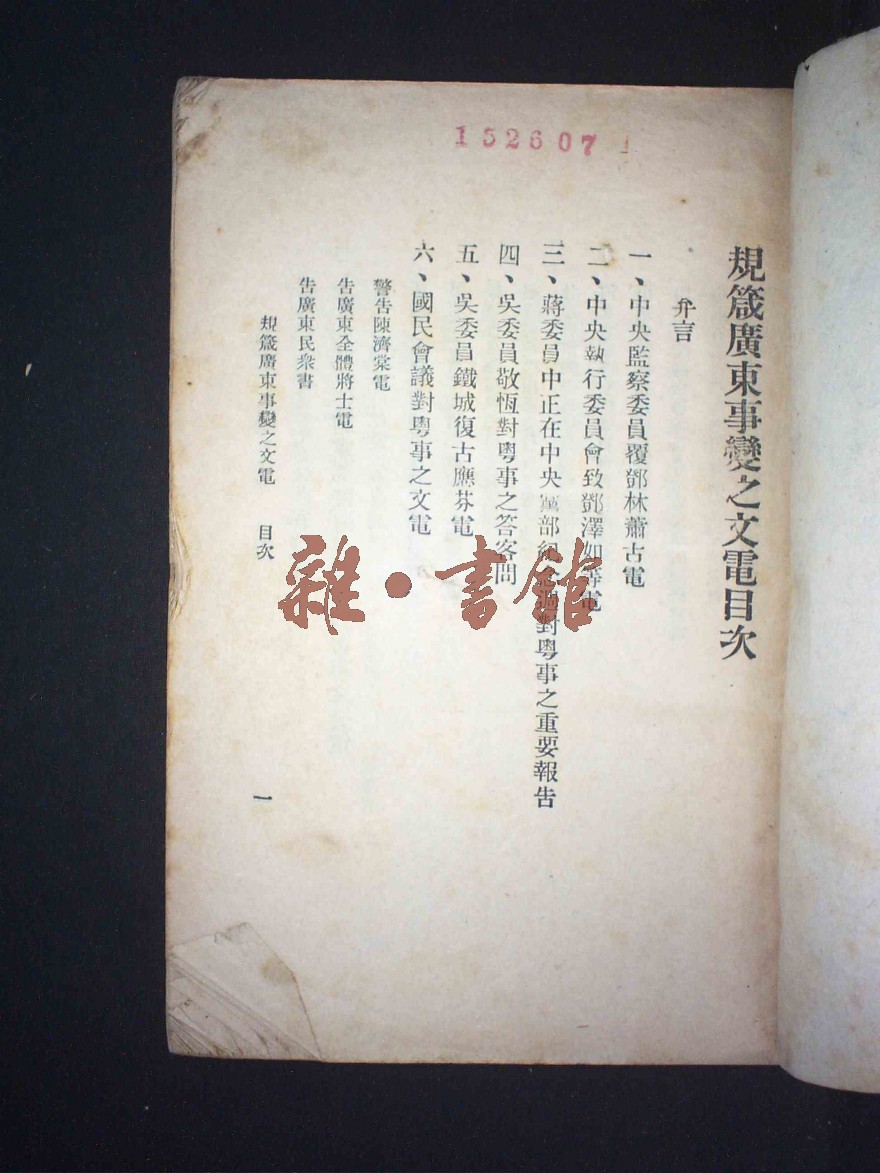 152607
規箴廣東事變之文電目次
弁言
一、中央監察委員覆鄧林蕭古電
二、中央執行委員會致鄧澤如等電
三、蔣委員中正在中央黨部紀念週對粵事之重要報告
四、吳委員敬恆對粵事之答客問
五、吳委員鐵城復古應芬電
六、國民會議對粵事之文電
警告陳濟棠電
告廣東全體將士電
告廣東民衆書
規箴廣東事變之文電 目次
一
雜·書館